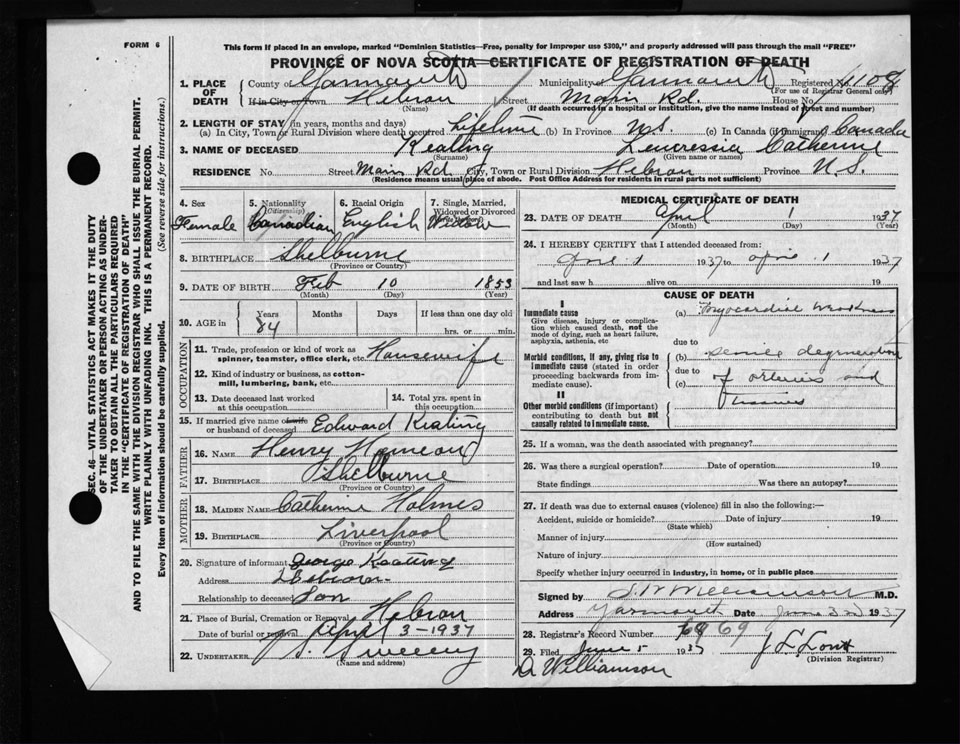 FORM 6
This form if placed in an envelope, marked "Dominion Statistics—Free, penalty for improper use $300," and properly addressed will pass through the mail "FREE"
PROVINCE OF NOVA SCOTIA—CERTIFICATE OF REGISTRATION OF DEATH
1. PLACE OF DEATH County of Yarmouth Municipality of Yarmouth Registered No. 1108
(For use of Registrar General only)
If in City or Town Hebron Street Main Rd. House No.
(Name) (If death occurred in a hospital or institution, give the name instead of street and number)
2. LENGTH OF STAY (in years, months and days)
(a) In City, Town or Rural Division where death occurred Lifetime (b) In Province N.S. (c) In Canada (if immigrant) Canada
3. NAME OF DECEASED Keating Catherine
(Surname) (Given name or names)
RESIDENCE No. Street Main Rd City, Town or Rural Division Hebron Province N.S.
(Residence means usual place of abode. Post Office Address for residents in rural parts not sufficient)
4. Sex Female
5. Nationality (Citizenship) Canadian
6. Racial Origin English
7. Single, Married, Widowed or Divorced Widow
8. BIRTHPLACE Shelburne
(Province or Country)
9. DATE OF BIRTH Feb 10 1853
(Month) (Day) (Year)
10. AGE in Years Months Days If less than one day old
84 hrs. or min.
OCCUPATION
11. Trade, profession or kind of work as spinner, teamster, office clerk, etc. Housewife
12. Kind of industry or business, as cotton-mill, lumbering, bank, etc.
13. Date deceased last worked at this occupation
14. Total yrs. spent in this occupation
15. If married give name of wife or husband of deceased Edward Keating
FATHER
16. NAME Henry
17. BIRTHPLACE Shelburne
(Province or Country)
MOTHER
18. MAIDEN NAME Catherine Holmes
19. BIRTHPLACE Liverpool
(Province or Country)
20. Signature of informant George Keating
Address Hebron
Relationship to deceased Son
21. Place of Burial, Cremation or Removal Hebron
Date of burial or removal April 3-1937
22. UNDERTAKER S. Sweeny
(Name and address)
MEDICAL CERTIFICATE OF DEATH
23. DATE OF DEATH April 1 1937
(Month) (Day) (Year)
24. I HEREBY CERTIFY that I attended deceased from
April 1 1937 to April 1 1937
and last saw h alive on 19
CAUSE OF DEATH
I
Immediate cause
Give disease, injury or complication which caused death, not the mode of dying, such as heart failure, asphyxia, asthenia, etc
(a) Myocardial weakness
due to
Morbid conditions, if any, giving rise to immediate cause (stated in order proceeding backwards from immediate cause).
(b) senile degeneration
due to
(c) of arteries and
tissues
II
Other morbid conditions (if important) contributing to death but not causally related to immediate cause.
25. If a woman, was the death associated with pregnancy?
26. Was there a surgical operation? Date of operation 19
State findings Was there an autopsy?
27. If death was due to external causes (violence) fill in also the following:—
Accident, suicide or homicide? Date of injury 19
(State which)
Manner of injury
(How sustained)
Nature of injury
Specify whether injury occurred in industry, in home, or in public place
Signed by S.W. Williamson M.D.
Address Yarmouth Date June 3rd 1937
28. Registrar's Record Number 69
29. Filed June 5 1937
(Division Registrar)
Dr Williamson
SEC. 46—VITAL STATISTICS ACT MAKES IT THE DUTY OF THE UNDERTAKER OR PERSON ACTING AS UNDERTAKER TO OBTAIN ALL THE PARTICULARS REQUIRED IN THE "CERTIFICATE OF REGISTRATION OF DEATH"
AND TO FILE THE SAME WITH THE DIVISION REGISTRAR WHO SHALL ISSUE THE BURIAL PERMIT.
WRITE PLAINLY WITH UNFADING INK. THIS IS A PERMANENT RECORD.
Every item of information should be carefully supplied. (See reverse side for instructions.)